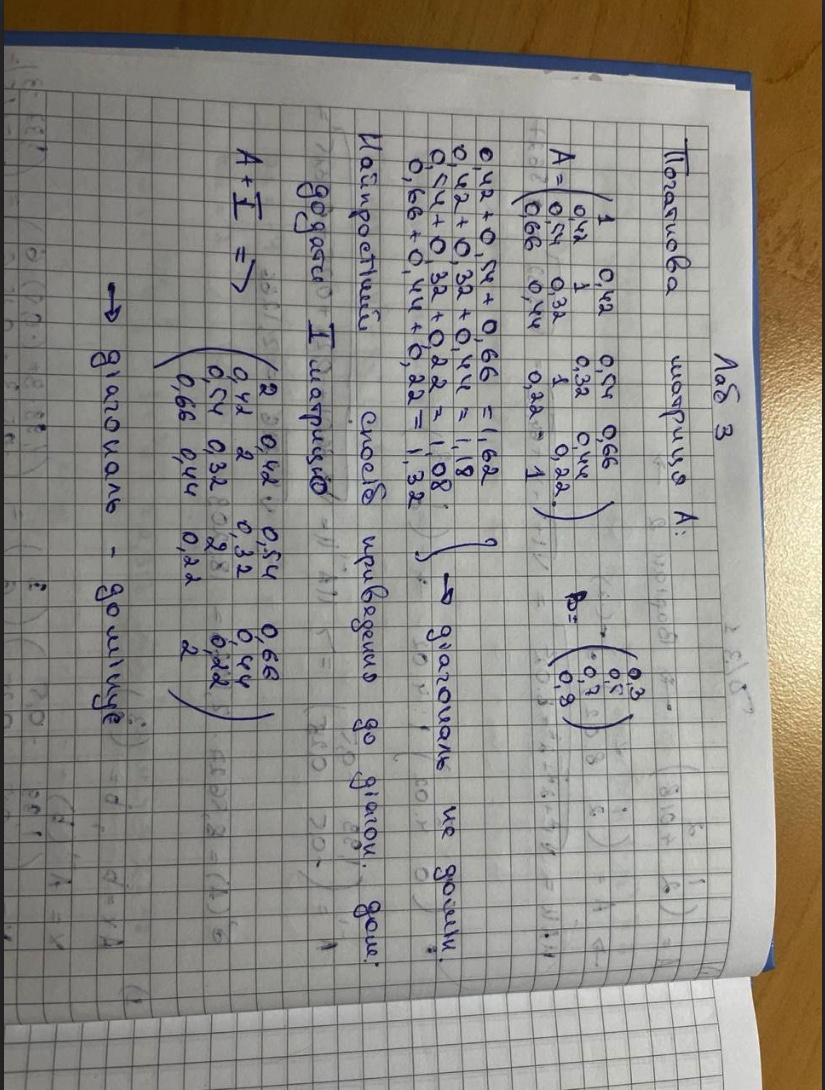 Лаб 3
Початкова матриця А:
A = ( 1 0,42 0,54 0,66
0,42 1 0,32 0,44
0,54 0,32 1 0,22
0,66 0,44 0,22 1 )
b = ( 0,3
0,5
0,7
0,9 )
0,42 + 0,54 + 0,66 = 1,62
0,42 + 0,32 + 0,44 = 1,18
0,54 + 0,32 + 0,22 = 1,08
0,66 + 0,44 + 0,22 = 1,32
} → діагональ не домін.
Найпростіший спосіб приведення до діагон. дом:
додати I матрицю
A + I => ( 2 0,42 0,54 0,66
0,42 2 0,32 0,44
0,54 0,32 2 0,22
0,66 0,44 0,22 2 )
→ діагональ - домінує